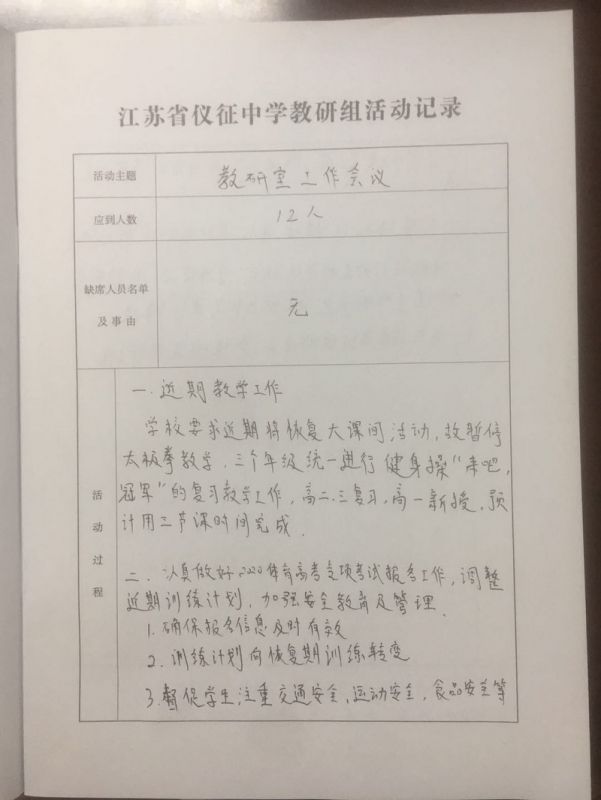 江苏省仪征中学教研组活动记录
活动主题 教研室工作会议
应到人数 12人
缺席人员名单
及事由 无
活动过程
一.近期教学工作
学校要求近期将恢复大课间活动,故暂停
太极拳教学,三个年级统一进行健身操“来吧,
冠军”的复习教学工作,高二.三复习,高一新授,预
计用三节课时间完成.
二.认真做好2020体育高考专项考试报名工作,调整
近期训练计划,加强安全教育及管理.
1.确保报名信息及时有效
2.训练计划向恢复期训练转变
3.督促学生注重交通安全,运动安全,食品安全等